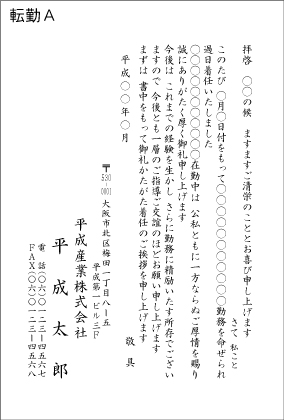 転勤A
拝啓　〇〇の候　ますますご清栄のこととお喜び申し上げます
さて 私こと
このたび 〇月〇日付をもって〇〇〇〇〇〇〇〇〇〇勤務を命ぜられ
過日着任いたしました
〇〇〇〇〇〇〇〇〇〇在勤中は 公私ともに一方ならぬご厚情を賜り
誠にありがたく厚く御礼申し上げます
今後は これまでの経験を生かし さらに勤務に精励いたす所存でござい
ますので 今後とも一層のご指導ご交誼のほどお願い申し上げます
まずは 書中をもって御礼かたがた着任のご挨拶を申し上げます
敬具
平成〇〇年〇月
〒530-0001 大阪市北区梅田一丁目八ー五
平成第一ビル三F
平成産業株式会社
平成太郎
電話(〇六)〇一二三ー四五六七
FAX(〇六)〇一二三ー四五六八